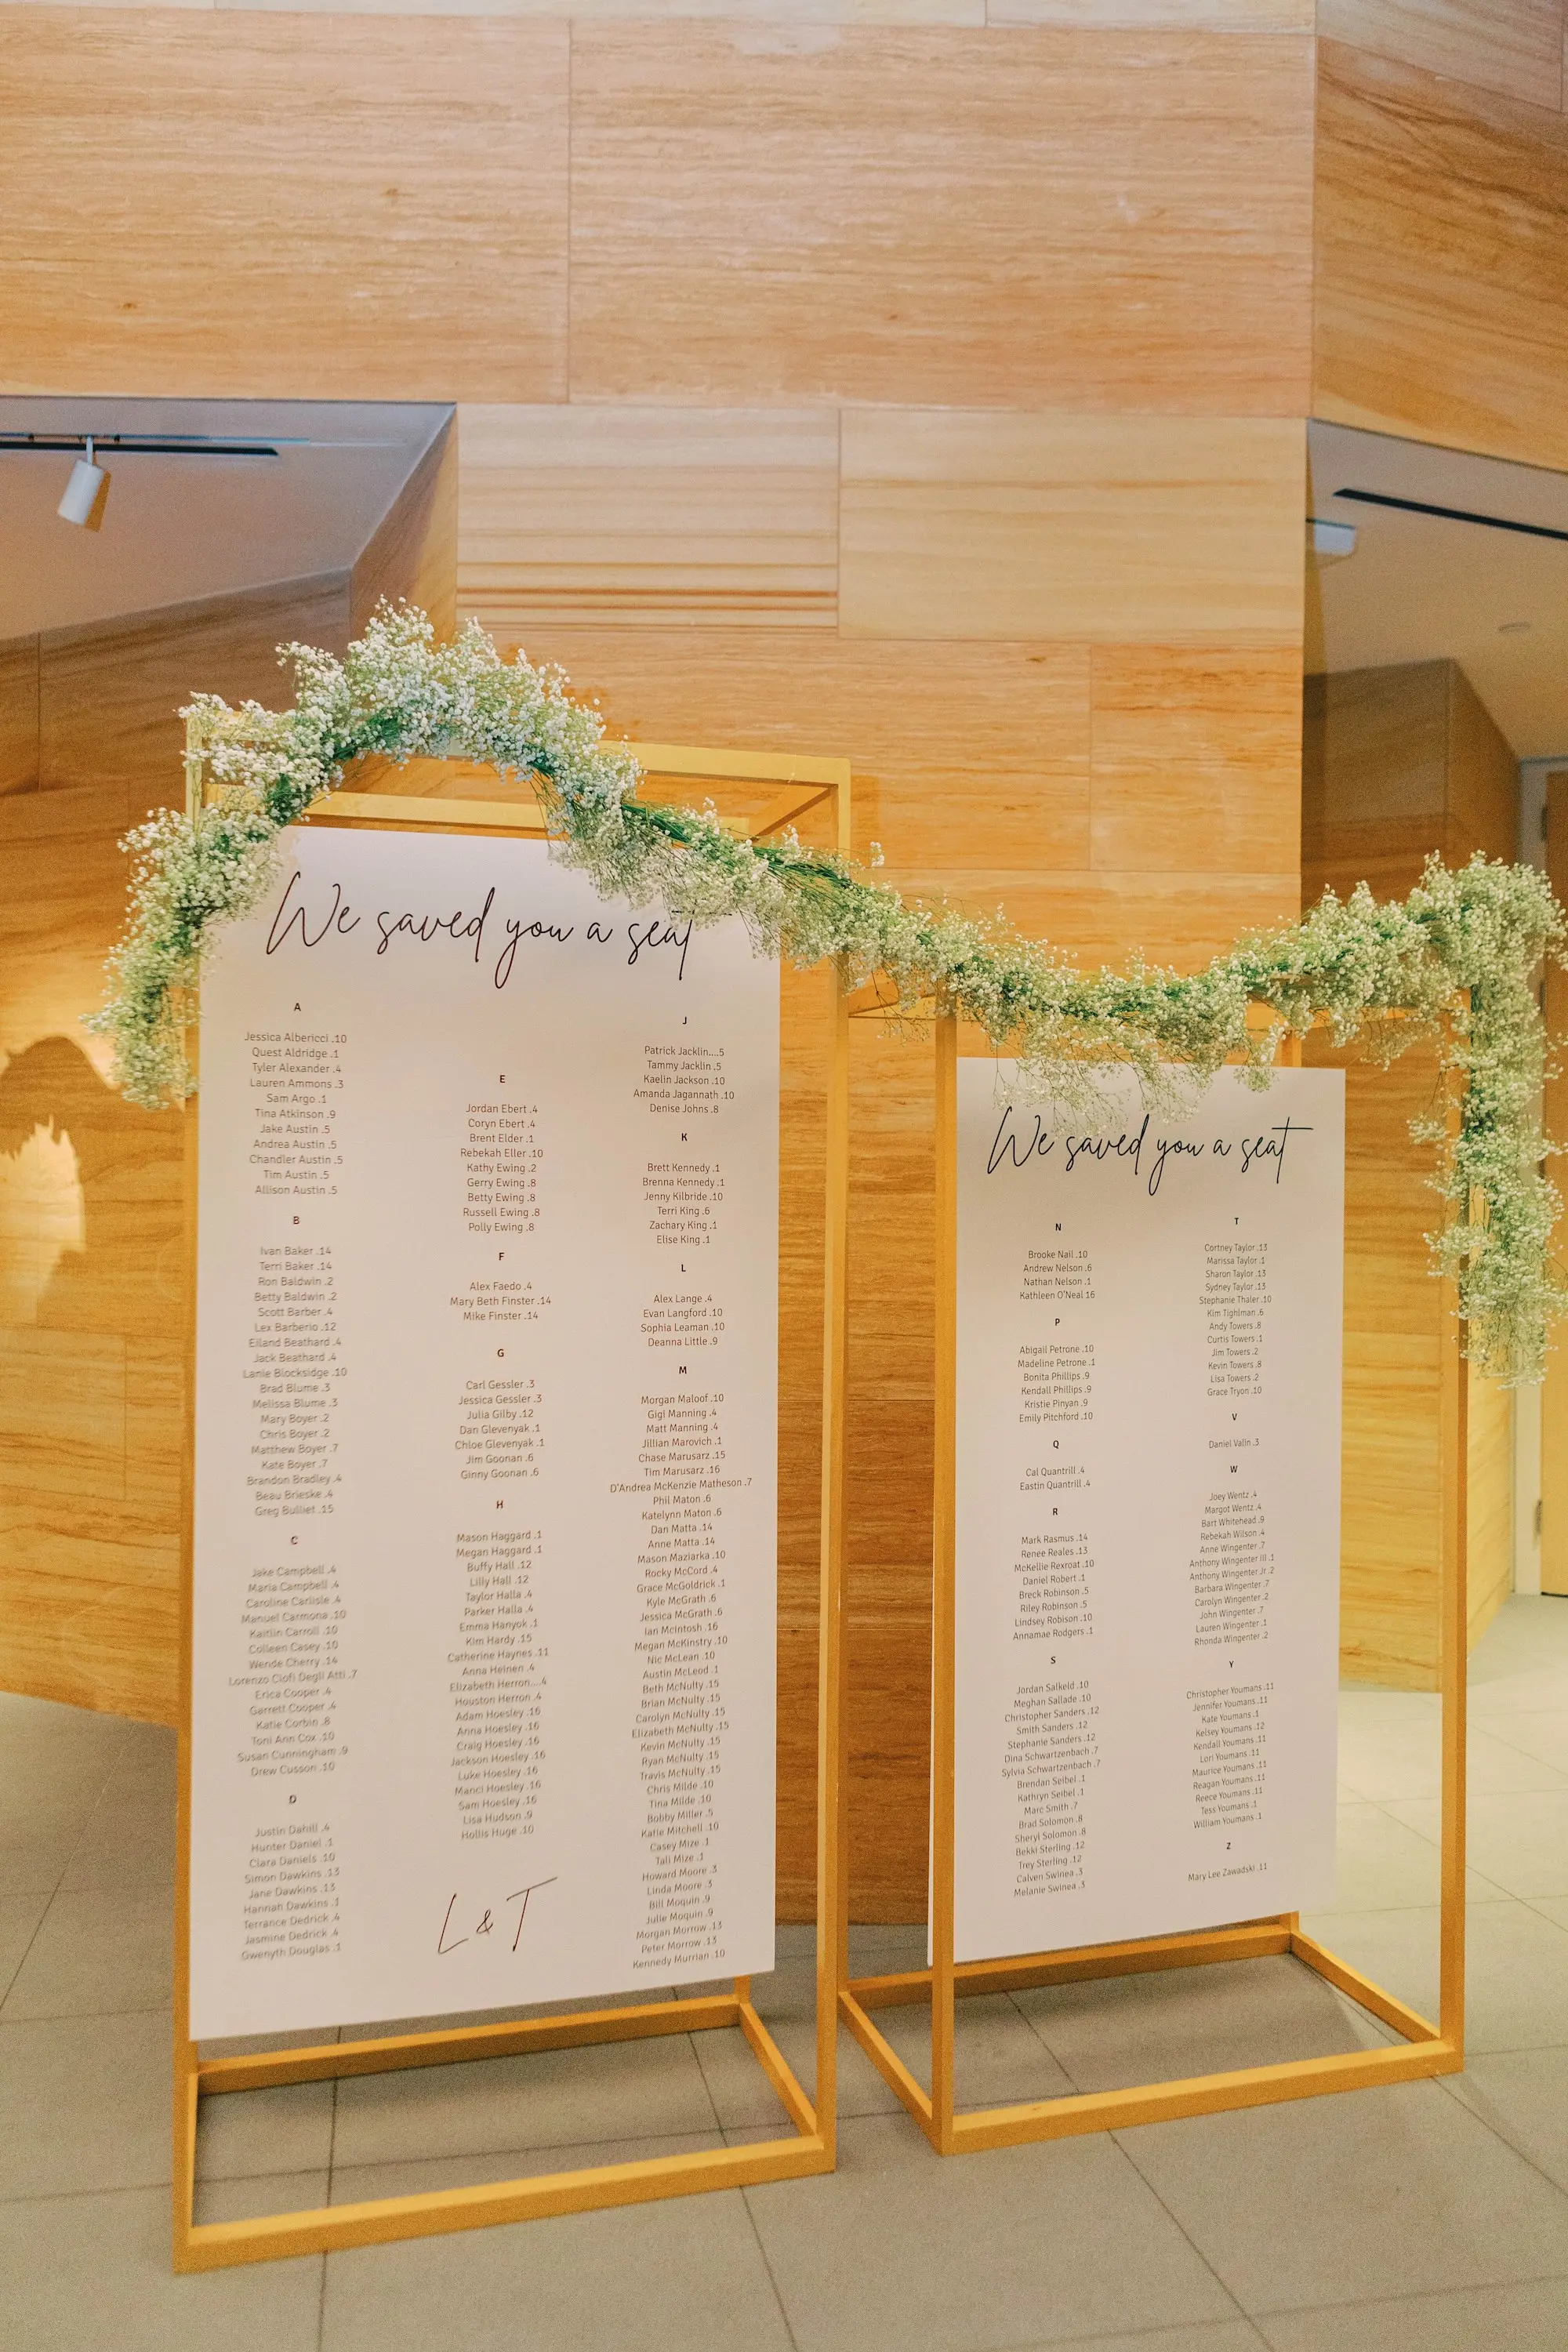 We saved you a seat
A
Jessica Albericci .10
Quest Aldridge .1
Tyler Alexander .4
Lauren Ammons .3
Sam Argo .1
Tina Atkinson .9
Jake Austin .5
Andrea Austin .5
Chandler Austin .5
Tim Austin .5
Allison Austin .5
B
Ivan Baker .14
Terri Baker .14
Ron Baldwin .2
Betty Baldwin .2
Scott Barber .4
Lex Barberio .12
Eiland Beathard .4
Jack Beathard .4
Lanie Blocksidge .10
Brad Blume .3
Melissa Blume .3
Mary Boyer .2
Chris Boyer .2
Matthew Boyer .7
Kate Boyer .7
Brandon Bradley .4
Beau Brieske .4
Greg Bulliet .15
C
Jake Campbell .4
Maria Campbell .4
Caroline Carlisle .4
Manuel Carmona .10
Kaitlin Carroll .10
Colleen Casey .10
Wende Cherry .14
Lorenzo Ciofi Degli Atti .7
Erica Cooper .4
Garrett Cooper .4
Katie Corbin .8
Toni Ann Cox .10
Susan Cunningham .9
Drew Cusson .10
D
Justin Dahill .4
Hunter Daniel .1
Clara Daniels .10
Simon Dawkins .13
Jane Dawkins .13
Hannah Dawkins .1
Terrance Dedrick .4
Jasmine Dedrick .4
Gwenyth Douglas .1
E
Jordan Ebert .4
Coryn Ebert .4
Brent Elder .1
Rebekah Eller .10
Kathy Ewing .2
Gerry Ewing .8
Betty Ewing .8
Russell Ewing .8
Polly Ewing .8
F
Alex Faedo .4
Mary Beth Finster .14
Mike Finster .14
G
Carl Gessler .3
Jessica Gessler .3
Julia Gilby .12
Dan Glevenyak .1
Chloe Glevenyak .1
Jim Goonan .6
Ginny Goonan .6
H
Mason Haggard .1
Megan Haggard .1
Buffy Hall .12
Lilly Hall .12
Taylor Halla .4
Parker Halla .4
Emma Hanyok .1
Kim Hardy .15
Catherine Haynes .11
Anna Heinen .4
Elizabeth Herron....4
Houston Herron .4
Adam Hoesley .16
Anna Hoesley .16
Craig Hoesley .16
Jackson Hoesley .16
Luke Hoesley .16
Manci Hoesley .16
Sam Hoesley .16
Lisa Hudson .9
Hollis Huge .10
L & T
J
Patrick Jacklin....5
Tammy Jacklin .5
Kaelin Jackson .10
Amanda Jagannath .10
Denise Johns .8
K
Brett Kennedy .1
Brenna Kennedy .1
Jenny Kilbride .10
Terri King .6
Zachary King .1
Elise King .1
L
Alex Lange .4
Evan Langford .10
Sophia Leaman .10
Deanna Little .9
M
Morgan Maloof .10
Gigi Manning .4
Matt Manning .4
Jillian Marovich .1
Chase Marusarz .15
Tim Marusarz .16
D'Andrea McKenzie Matheson .7
Phil Maton .6
Katelynn Maton .6
Dan Matta .14
Anne Matta .14
Mason Maziarka .10
Rocky McCord .4
Grace McGoldrick .1
Kyle McGrath .6
Jessica McGrath .6
Ian McIntosh .16
Megan McKinstry .10
Nic McLean .10
Austin McLeod .1
Beth McNulty .15
Brian McNulty .15
Carolyn McNulty .15
Elizabeth McNulty .15
Kevin McNulty .15
Ryan McNulty .15
Travis McNulty .15
Chris Milde .10
Tina Milde .10
Bobby Miller .5
Katie Mitchell .10
Casey Mize .1
Tali Mize .1
Howard Moore .3
Linda Moore .3
Bill Moquin .9
Julie Moquin .9
Morgan Morrow .13
Peter Morrow .13
Kennedy Murrian .10
We saved you a seat
N
Brooke Nail .10
Andrew Nelson .6
Nathan Nelson .1
Kathleen O'Neal 16
P
Abigail Petrone .10
Madeline Petrone .1
Bonita Phillips .9
Kendall Phillips .9
Kristie Pinyan .9
Emily Pitchford .10
Q
Cal Quantrill .4
Eastin Quantrill .4
R
Mark Rasmus .14
Renee Reales .13
McKellie Rexroat .10
Daniel Robert .1
Breck Robinson .5
Riley Robinson .5
Lindsey Robison .10
Annamae Rodgers .1
S
Jordan Salkeld .10
Meghan Sallade .10
Christopher Sanders .12
Smith Sanders .12
Stephanie Sanders .12
Dina Schwartzenbach .7
Sylvia Schwartzenbach .7
Brendan Seibel .1
Kathryn Seibel .1
Marc Smith .7
Brad Solomon .8
Sheryl Solomon .8
Bekki Sterling .12
Trey Sterling .12
Calven Swinea .3
Melanie Swinea .3
T
Cortney Taylor .13
Marissa Taylor .1
Sharon Taylor .13
Sydney Taylor .13
Stephanie Thaler .10
Kim Tighlman .6
Andy Towers .8
Curtis Towers .1
Jim Towers .2
Kevin Towers .8
Lisa Towers .2
Grace Tryon .10
V
Daniel Valin .3
W
Joey Wentz .4
Margot Wentz .4
Bart Whitehead .9
Rebekah Wilson .4
Anne Wingenter .7
Anthony Wingenter III .1
Anthony Wingenter Jr .2
Barbara Wingenter .7
Carolyn Wingenter .2
John Wingenter .7
Lauren Wingenter .1
Rhonda Wingenter .2
Y
Christopher Youmans .11
Jennifer Youmans .11
Kate Youmans .1
Kelsey Youmans .12
Kendall Youmans .11
Lori Youmans .11
Maurice Youmans .11
Reagan Youmans .11
Reece Youmans .11
Tess Youmans .1
William Youmans .1
Z
Mary Lee Zawadski .11